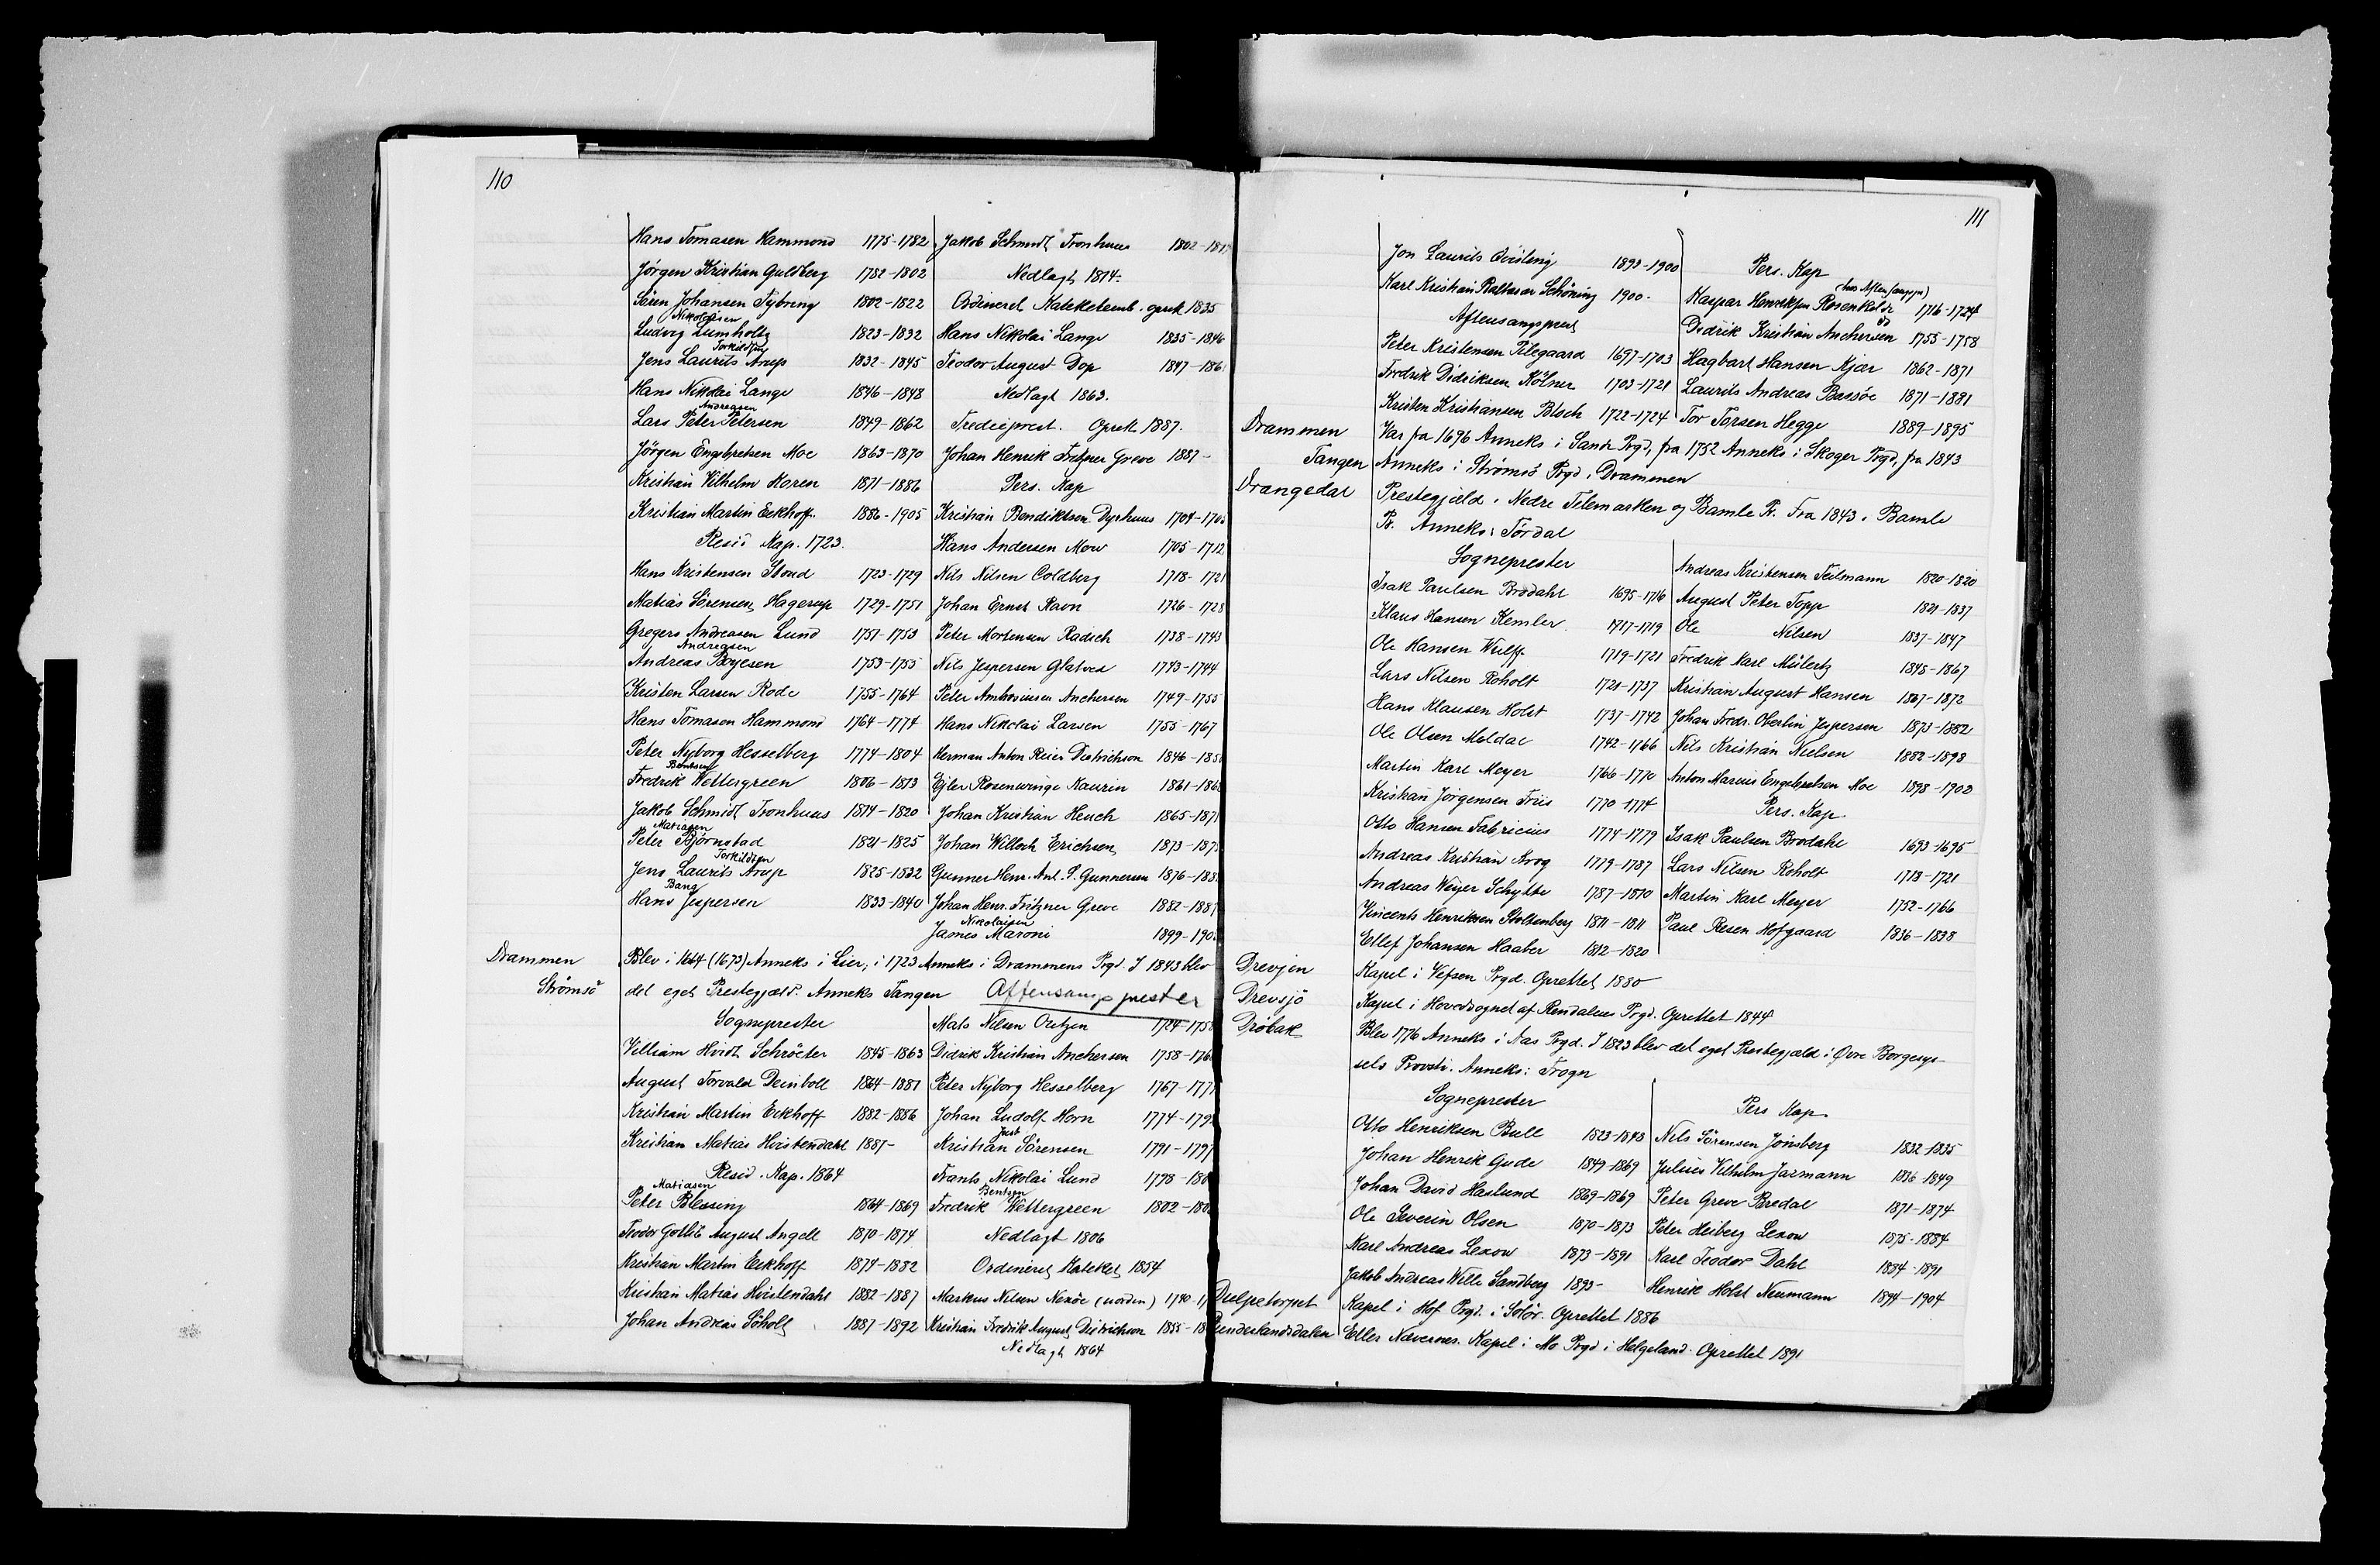 110
Hans Tomasen Hammond 1775-1782
Jörgen Kristian Guldberg 1782-1802
Sören Johansen Tybring 1802-1822
Nikolaisen
Ludvig Lumholtz 1823-1832
Torkildsen
Jens Laurits Arup 1832-1845
Hans Nikolai Lange 1846-1848
Andreasen
Lars Peter Petersen 1849-1862
Jörgen Engebretsen Moe 1863-1870
Kristian Vilhelm Koren 1871-1886
Kristian Martin Eckhoff 1886-1905
Resid Kap. 1723.
Hans Kristensen Stoud 1723-1729
Matias Sörensen Hagerup 1729-1751
Gregers Andreasen Lund 1751-1753
Andreasen
Andreas Boyesen 1753-1755
Kristen Larsen Rode 1755-1764
Hans Tomasen Hammond 1764-1774
Peter Nyborg Hesselberg 1774-1804
Bentsen
Fredrik Wettergreen 1806-1813
Jakob Schmidt Tronhuus 1814-1820
Matiasen
Peter Björnstad 1821-1825
Torkildsen
Jens Laurits Arup 1825-1832
Bang
Hans Jespersen 1833-1840
Jakob Schmidt Tronhuus 1802-181
Nedlagt 1814.
Ordineret Kateketemb. opret 1835
Hans Nikolai Lange 1835-1846
Teodor August Dop 1847-186
Nedlagt 1863.
Trediepræst. Opret 1887.
Johan Henrik Fritzner Greve 1887-
Pers. Kap
Kristian Bendiktsen Dyrhuus 1704-1705
Hans Andersen Mow 1705-1712
Nils Nilsen Coldberg 1718-1721
Johan Ernst Ravn 1726-1728
Peter Mortensen Radich 1738-1743
Nils Jespersen Glatved 1743-1744
Peter Ambrosiusen Anchersen 1749-1755
Hans Nikolai Larsen 1755-1767
Herman Anton Reier Dietrichson 1846-185
Ejler Rosenvinge Kaurin 1861-186
Johan Kristian Heuch 1865-187
Johan Willoch Erichsen 1873-187
Gunner Henr. Ant. P. Gunnersen 1876-188
Johan Henr. Fritzner Greve 1882-1887
Nikolaisen
James Maroni 1899-190
Drammen Blev i 1664 (1673) Anneks i Lier; i 1723 Anneks i Drammens Prgd. I 1843 blev
Strømsö det eget Prestegjæld. Anneks Tangen Aftensangsprester
Sogneprester
Villiam Hvidt Schröeter 1845-1863
August Torvald Deinboll 1864-1881
Kristian Martin Eckhoff 1882-1886
Kristian Matias Hvistendahl 1887-
Resid. Kap. 1864
Matiasen
Peter Blessing 1864-1869
Teodor Gotlib August Angell 1870-1874
Kristian Martin Eckhoff 1874-1882
Kristian Matias Hvistendahl 1882-1887
Johan Andreas Söholt 1887-1892
Mats Nilsen 1724-175
Didrik Kristian Anchersen 1758-176
Peter Nyborg Hesselberg 1767-177
Johan Ludolf Horn 1774-179
Just
Kristian Sörensen 1791-1797
Frants Nikolai Lund 1798-180
Bentsen
Fredrik Wettergreen 1802-180
Nedlagt 1806
Ordineret Kateket 1854
Markus Nilsen Nexöe (norden) 1740-1
Kristian Fredrik August Dietrichson 1855-18
Nedlagt 1864
111
Jon Laurits Qvisling 1893-1900
Karl Kristian Baltasar Schöning 1900-
Aftensangsprest
Peter Kristensen Pilegaard 1697-1703
Fredrik Didriksen Kölner 1703-1721
Kristen Kristiansen Bloch 1722-1724
Pers. Kap
Kaspar Henriksen Rosenkilde 1716-1724
Didrik Kristian Anchersen 1755-1758
Hagbart Hansen Kjær 1862-1871
Laurits Andreas Bassöe 1871-1881
Tor Torsen Hegge 1889-1895
Drammen Var fra 1696 Anneks i Sande Prgd, fra 1752 Anneks i Skoger Prgd, fra 1843
Tangen Anneks i Strømsö Prgd i Drammen
Drangedal Prestegjæld i Nedre Telemarken og Bamle P. Fra 1843 i Bamle
P. Anneks: Tördal
Sogneprester
Isak Paulsen Brodahl 1695-1716
Klaus Hansen Kemler 1717-1719
Ole Hansen Wulff 1719-1721
Lars Nilsen Roholt 1721-1737
Hans Klausen Holst 1737-1742
Ole Olsen Meldal 1742-1766
Martin Karl Meyer 1766-1770
Kristian Jörgensen Friis 1770-1774
Otto Hansen Fabricius 1774-1779
Andreas Kristian Krog 1779-1787
Andreas Weyer Schytte 1787-1810
Vincents Henriksen Stoltenberg 1811-1811
Ellef Johansen Haaber 1812-1820
Andreas Kristensen Teilmann 1820-1820
August Peter Topp 1821-1837
Ole Nilsen 1837-1847
Fredrik Karl Mülertz 1848-1867
Kristian August Hansen 1867-1872
Johan Fredr. Oberlin Jespersen 1873-1882
Nils Kristian Nielsen 1882-1898
Anton Marius Engebretsen Moe 1898-1908
Pers. Kap
Isak Paulsen Brodahl 1693-1695
Lars Nilsen Roholt 1718-1721
Martin Karl Meyer 1752-1766
Paul Resen Hofgaard 1836-1838
Drevjen Kapel i Vefsen Prgd. Oprettet 1880
Drevsjö Kapel i Hovedsognet af Rendalens Prgd. Oprettet 1844
Dröbak Blev 1776 Anneks i Aas Prgd. I 1823 blev det eget Prestegjæld i Øvre Borgesys-
sels Provsti. Anneks: Frogn
Sogneprester
Otto Henriksen Bull 1823-1843
Johan Henrik Gude 1849-1869
Johan David Haslund 1869-1869
Ole Severin Olsen 1870-1873
Karl Andreas Lexow 1873-1891
Jakob Andreas Wille Sandberg 1893-
Pers Kap.
Nils Sörensen Jönsberg 1832-1835
Julius Vilhelm Jarmann 1836-1849
Peter Greve Bredal 1871-1874
Peter Heiberg Lexow 1875-1884
Karl Teodor Dahl 1884-1891
Henrik Holst Neumann 1894-1904
Dulpetorpet Kapel i Hof Prgd. i Solör. Oprettet 1886
Dunderlandsdalen Eller Nævernes. Kapel i Mo Prgd i Helgeland. Oprettet 1891